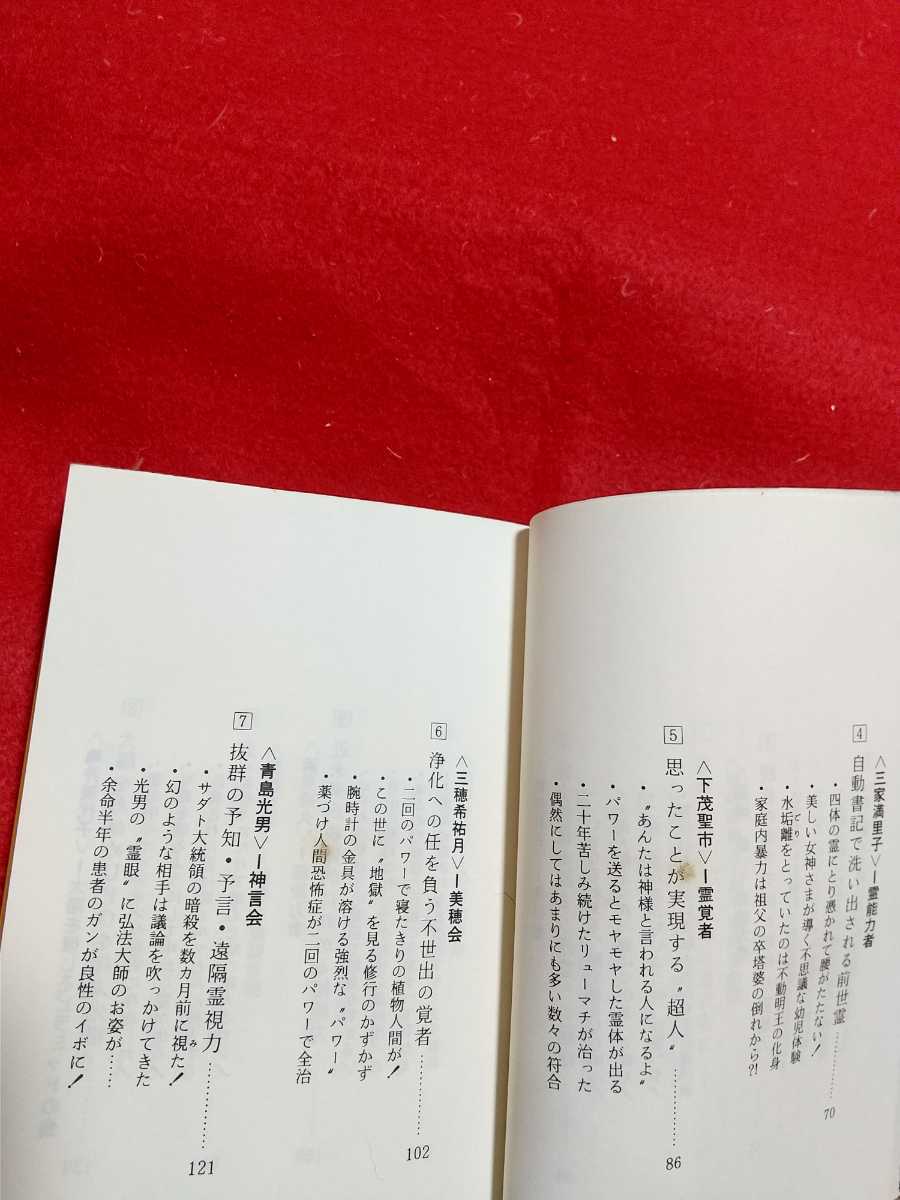 <三家満里子>ー霊能力者
4 自動書記で洗い出される前世霊…………70
・四体の霊にとり憑かれて腰がたたない!
・美しい女神さまが導く不思議な幼児体験
・水垢離をとっていたのは不動明王の化身
・家庭内暴力は祖父の卒塔婆の倒れから?!
<下茂聖市>ー霊覚者
5 思ったことが実現する〝超人〟…………86
・〝あんたは神様と言われる人になるよ〟
・パワーを送るとモヤモヤした霊体が出る
・二十年苦しみ続けたリューマチが治った
・偶然にしてはあまりにも多い数々の符合
<三穂希祐月>ー美穂会
6 浄化への任を負う不世出の覚者…………102
・二回のパワーで寝たきりの植物人間が!
・この世に〝地獄〟を見る修行のかずかず
・腕時計の金具が溶ける強烈な〝パワー〟
・薬づけ人間恐怖症が二回のパワーで全治
<青島光男>ー神言会
7 抜群の予知・予言・遠隔霊視力…………121
・サダト大統領の暗殺を数ヵ月前に視た!
・幻のような相手は議論を吹っかけてきた
・光男の〝霊眼〟に弘法大師のお姿が……
・余命半年の患者のガンが良性のイボに!